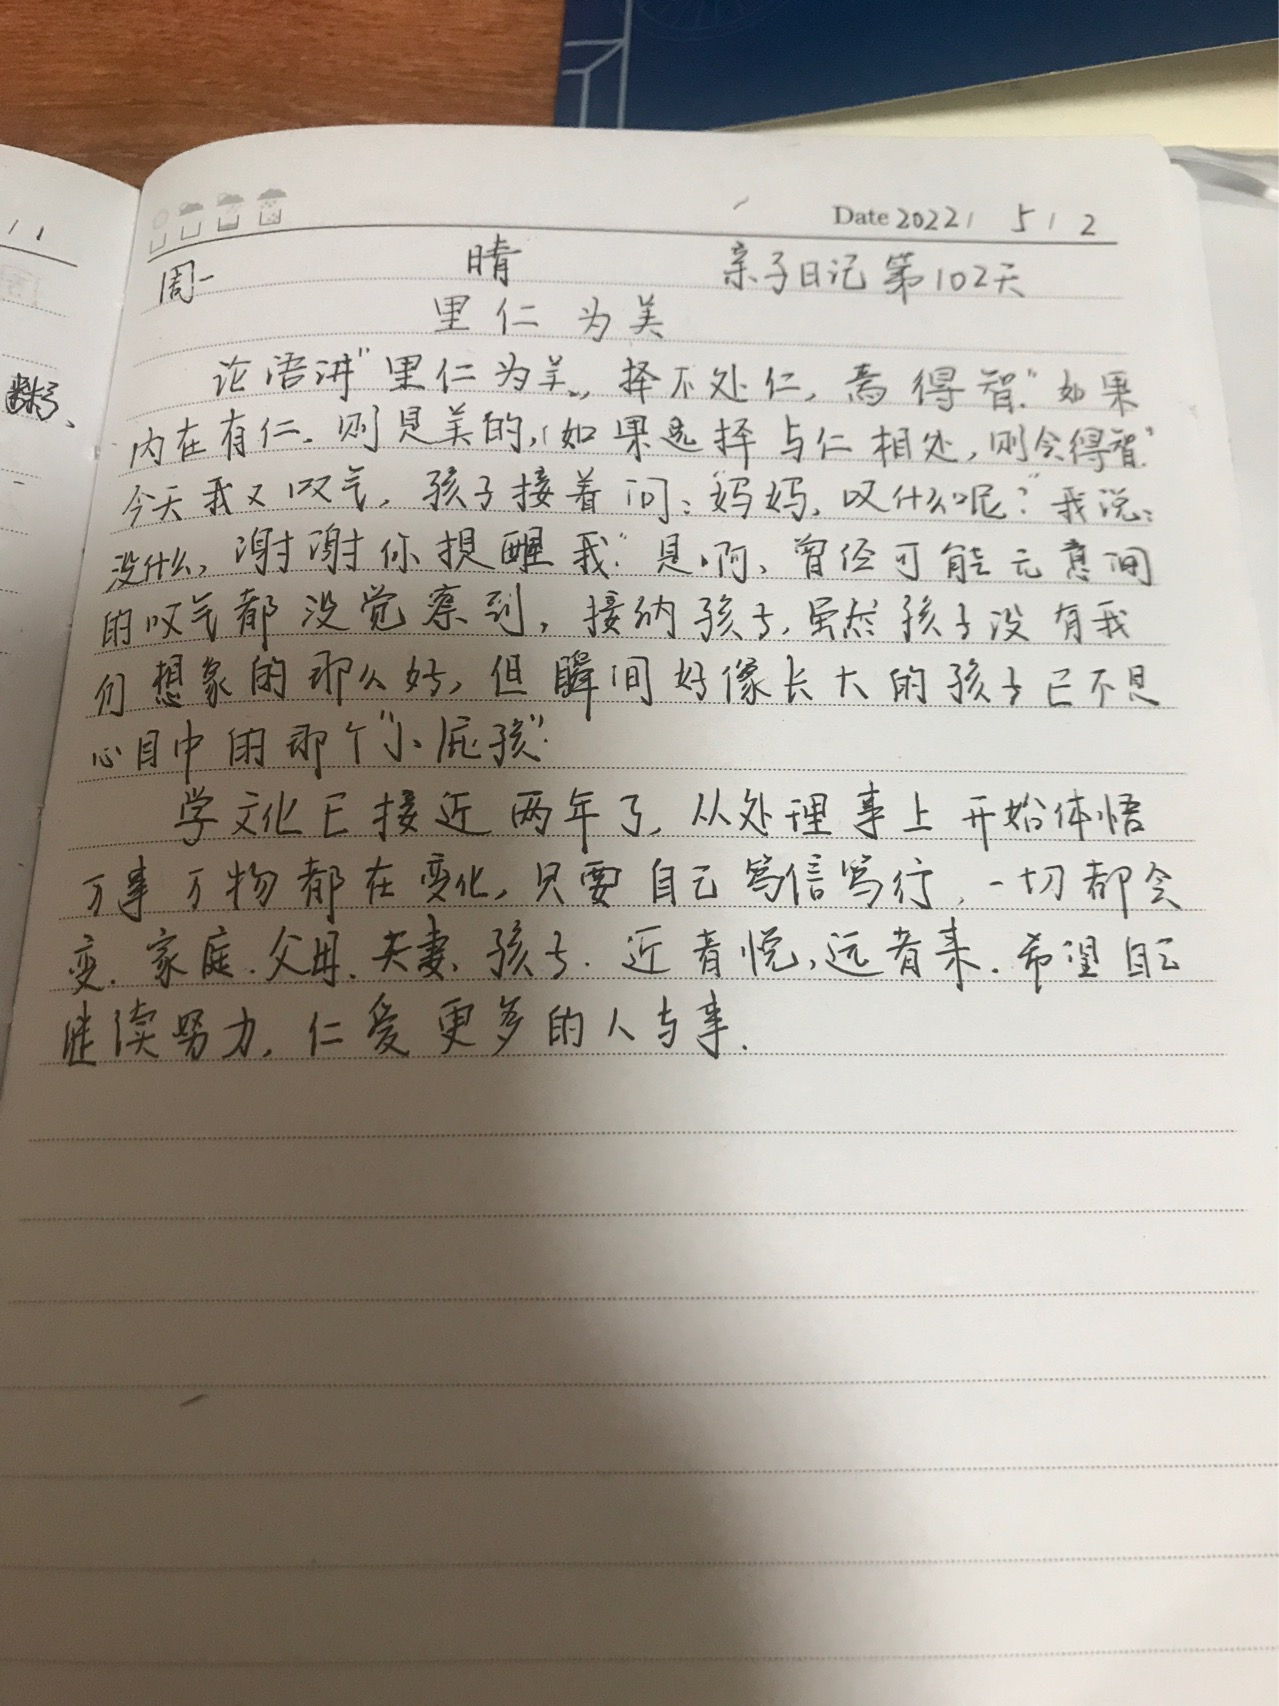 Date 2022/ 5/ 2
周一 晴 亲子日记 第102天
里仁为美
论语讲"里仁为美,择不处仁,焉得智."如果
内在有仁.则是美的,(如果选择与仁相处,则会得智."
今天我又叹气,孩子接着问:"妈妈,叹什么呢?"我说:
没什么,谢谢你提醒我."是啊,曾经可能无意间
的叹气都没觉察到,接纳孩子,虽然孩子没有我
们想象的那么好,但瞬间好像长大的孩子已不是
心目中的那个"小屁孩".
学文化已接近两年了,从处理事上开始体悟
万事万物都在变化,只要自己笃信笃行,一切都会
变.家庭.父母.夫妻、孩子.近者悦,远者来.希望自己
继续努力,仁爱更多的人与事.